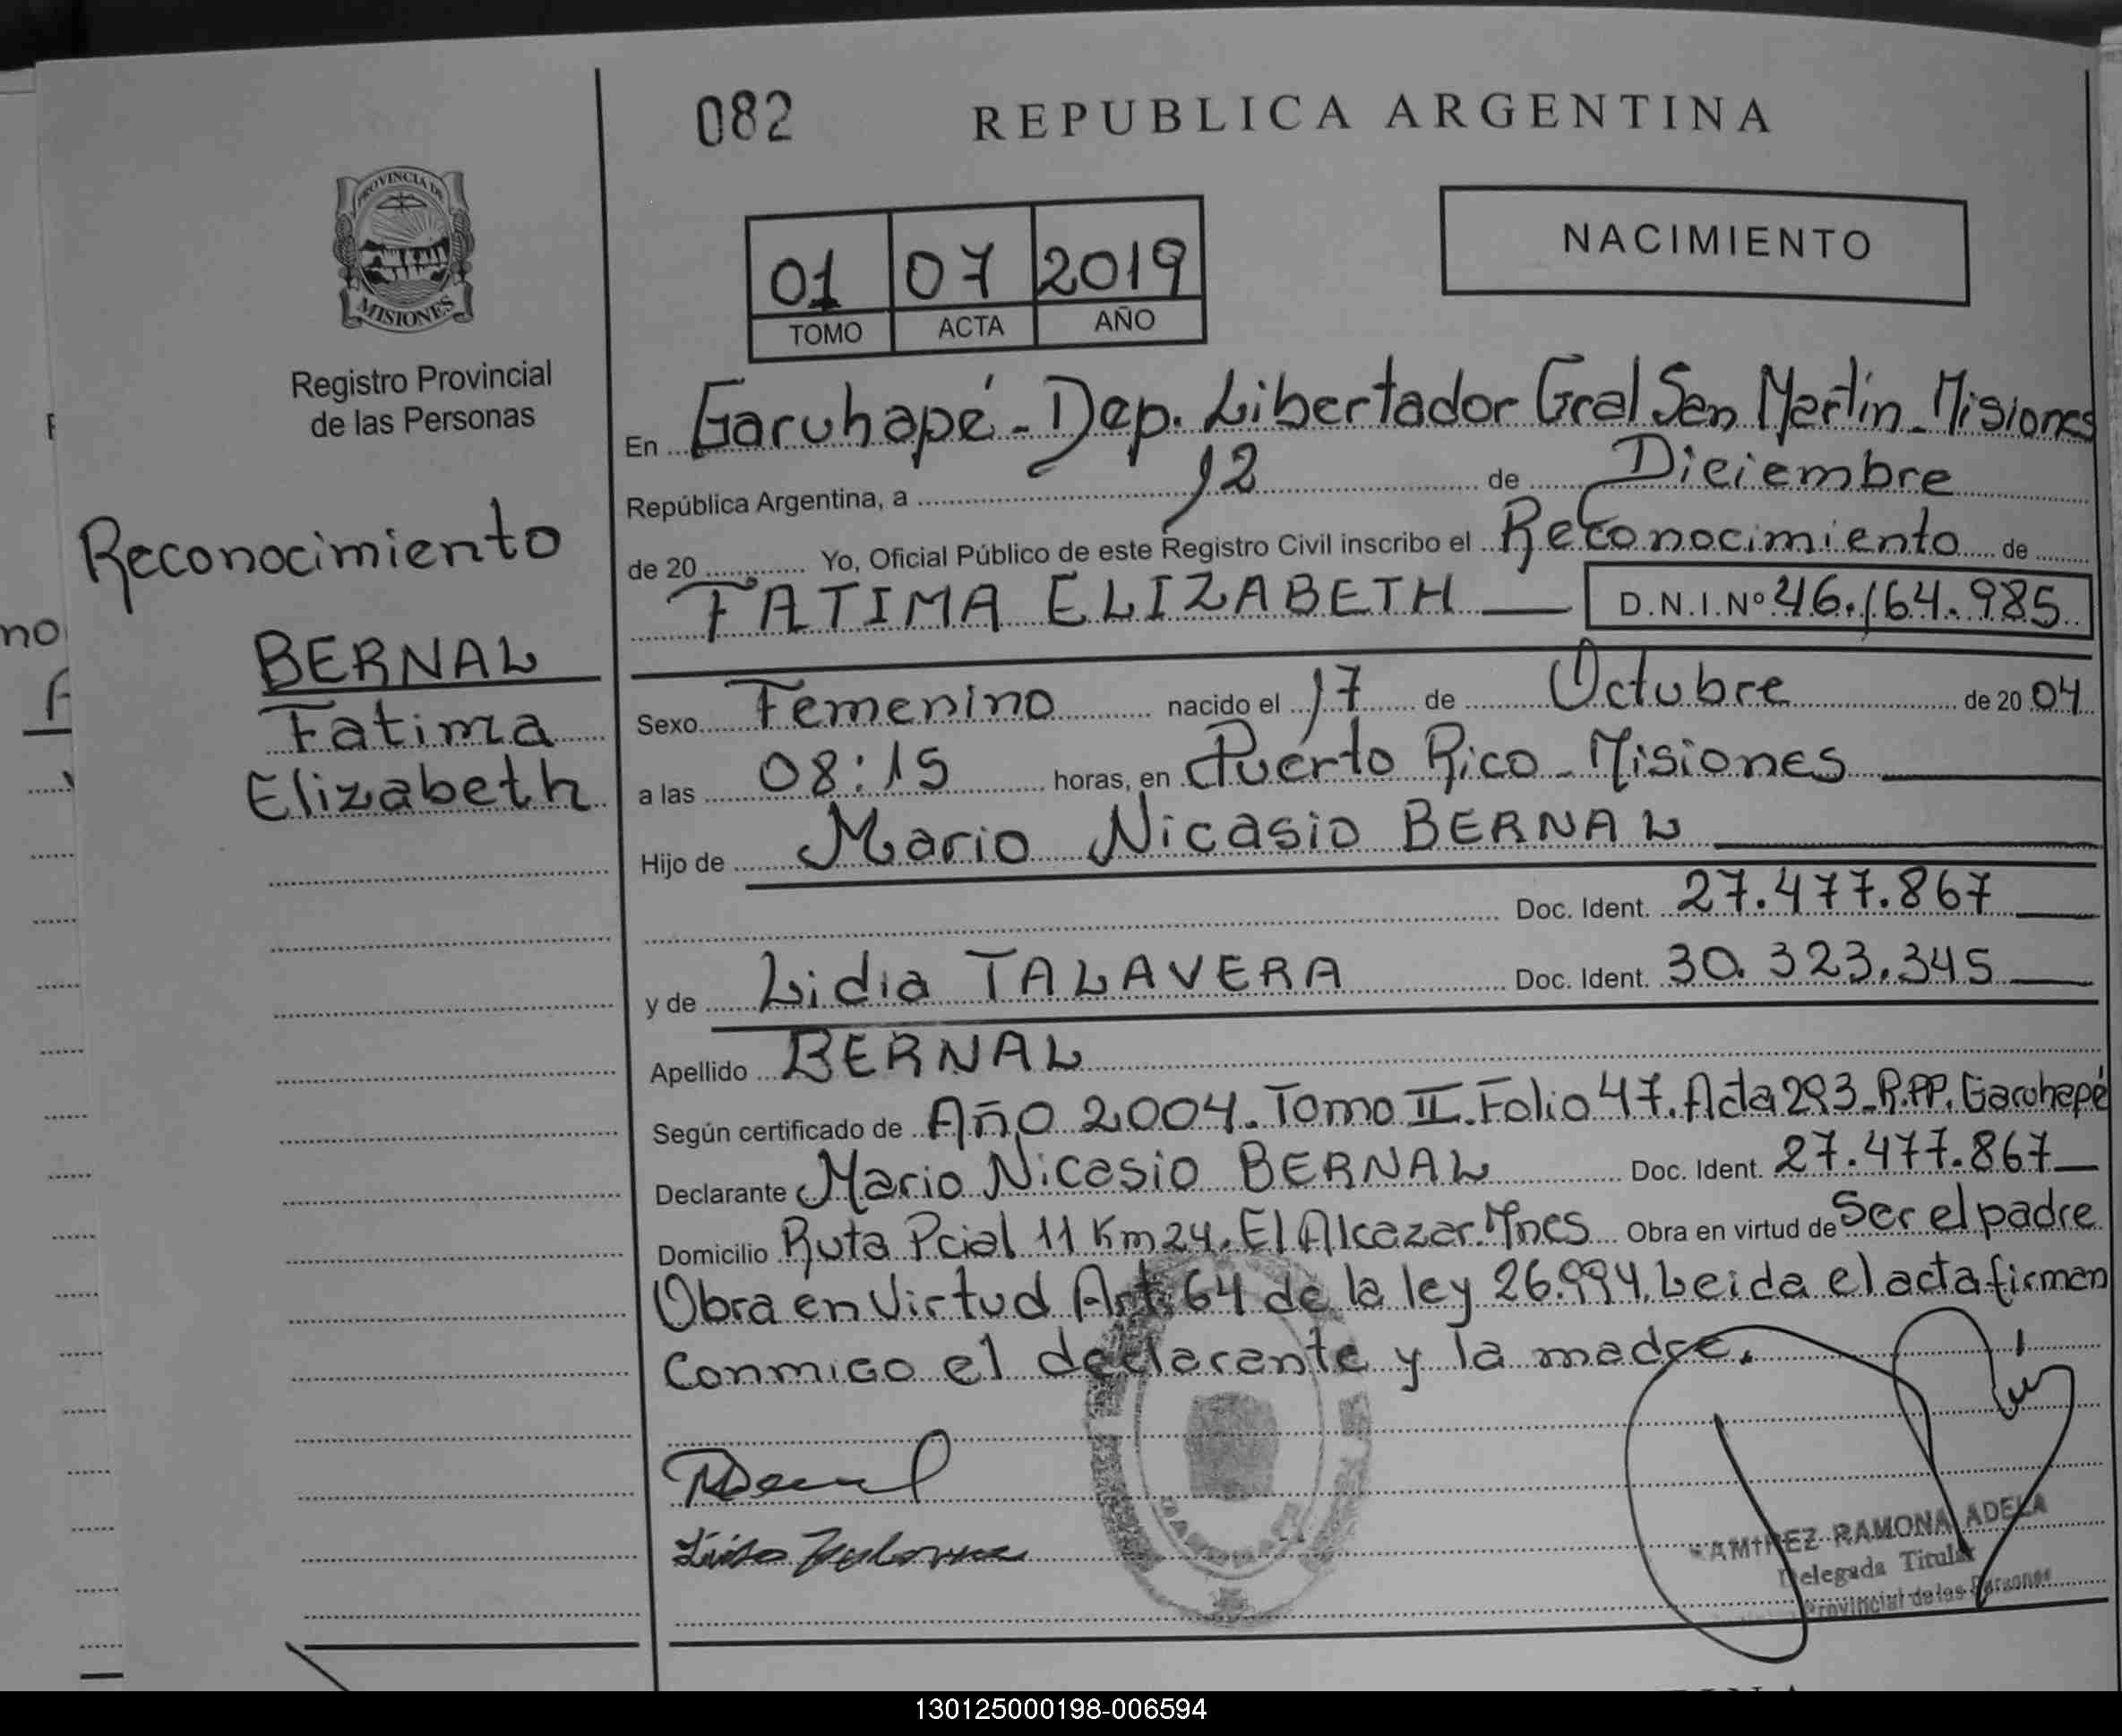 082
REPUBLICA ARGENTINA
PROVINCIA DE
MISIONES
01 07 2019
TOMO ACTA AÑO
NACIMIENTO
Registro Provincial
de las Personas
Reconocimiento
BERNAL
Fatima
Elizabeth
En Garuhapé - Dep. Libertador Gral San Martin - Misiones
República Argentina, a 12 de Diciembre
de 20 Yo, Oficial Público de este Registro Civil inscribo el Reconocimiento de
FATIMA ELIZABETH D.N.I.Nº 46.164.985
Sexo Femenino nacido el 17 de Octubre de 20 04
a las 08:15 horas, en Puerto Rico - Misiones
Hijo de Mario Nicasio BERNAL
Doc. Ident. 27.477.867
y de Lidia TALAVERA Doc. Ident. 30.323.345
Apellido BERNAL
Según certificado de Año 2004. Tomo II. Folio 47. Acta 293 - R.PP. Garuhapé
Declarante Mario Nicasio BERNAL Doc. Ident. 27.477.867
Domicilio Ruta Pcial 11 Km 24. El Alcazar. Mnes Obra en virtud de Ser el padre
Obra en Virtud Art. 64 de la ley 26.994. Leida el acta firman
conmigo el declarante y la madre.
RAMIREZ RAMONA ADELA
Delegada Titular
Provincial de las Personas
130125000198-006594